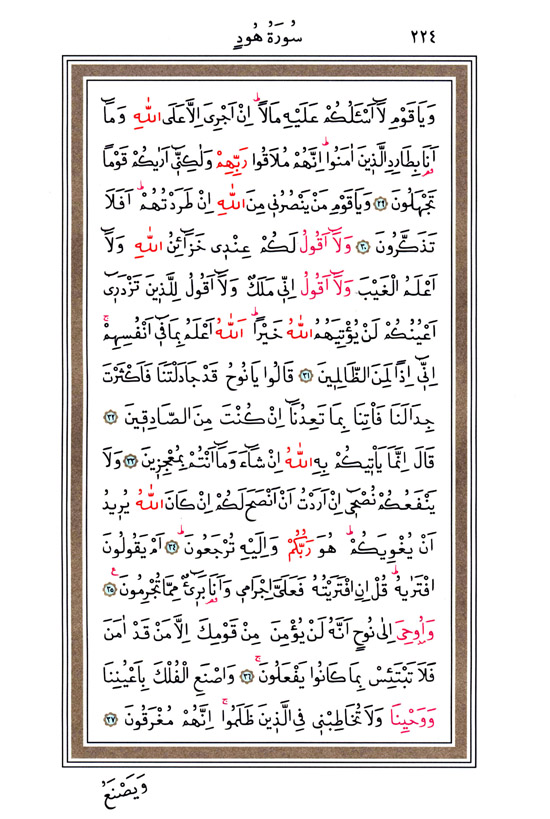 ٢٢٤ سُورَةُ هُودٍ
وَيَاقَوْمِ لَٓا اَسْـَٔلُكُمْ عَلَيْهِ مَالًاۜ اِنْ اَجْرِىَ اِلَّا عَلَى اللّٰهِ وَمَٓا
اَنَا۬ بِطَارِدِ الَّذ۪ينَ اٰمَنُواۜ اِنَّهُمْ مُلَاقُوا رَبِّهِمْ وَلٰكِنّ۪ٓى اَرٰيكُمْ قَوْمًا
تَجْهَلُونَ ﴿٢٩﴾ وَيَاقَوْمِ مَنْ يَنْصُرُن۪ى مِنَ اللّٰهِ اِنْ طَرَدْتُهُمْۜ اَفَلَا
تَذَكَّرُونَ ﴿٣٠﴾ وَلَٓا اَقُولُ لَكُمْ عِنْد۪ى خَزَٓائِنُ اللّٰهِ وَلَٓا
اَعْلَمُ الْغَيْبَ وَلَٓا اَقُولُ اِنّ۪ى مَلَكٌ وَلَٓا اَقُولُ لِلَّذ۪ينَ تَزْدَر۪ٓى
اَعْيُنُكُمْ لَنْ يُؤْتِيَهُمُ اللّٰهُ خَيْرًاۜ اَللّٰهُ اَعْلَمُ بِمَا ف۪ٓى اَنْفُسِهِمْۚ
اِنّ۪ٓى اِذًا لَمِنَ الظَّالِم۪ينَ ﴿٣١﴾ قَالُوا يَانُوحُ قَدْ جَادَلْتَنَا فَاَكْثَرْتَ
جِدَالَنَا فَأْتِنَا بِمَا تَعِدُنَٓا اِنْ كُنْتَ مِنَ الصَّادِق۪ينَ ﴿٣٢﴾
قَالَ اِنَّمَا يَأْت۪يكُمْ بِهِ اللّٰهُ اِنْ شَٓاءَ وَمَٓا اَنْتُمْ بِمُعْجِز۪ينَ ﴿٣٣﴾ وَلَا
يَنْفَعُكُمْ نُصْح۪ٓى اِنْ اَرَدْتُ اَنْ اَنْصَحَ لَكُمْ اِنْ كَانَ اللّٰهُ يُر۪يدُ
اَنْ يُغْوِيَكُمْۜ هُوَ رَبُّكُمْ وَاِلَيْهِ تُرْجَعُونَۜ ﴿٣٤﴾ اَمْ يَقُولُونَ
افْتَرٰيهُۜ قُلْ اِنِ افْتَرَيْتُهُ فَعَلَىَّ اِجْرَام۪ى وَاَنَا۬ بَر۪ٓىءٌ مِمَّا تُجْرِمُونَ۟ ﴿٣٥﴾
وَاُو۫حِىَ اِلٰى نُوحٍ اَنَّهُ لَنْ يُؤْمِنَ مِنْ قَوْمِكَ اِلَّا مَنْ قَدْ اٰمَنَ
فَلَا تَبْتَئِسْ بِمَا كَانُوا يَفْعَلُونَۚ ﴿٣٦﴾ وَاصْنَعِ الْفُلْكَ بِاَعْيُنِنَا
وَوَحْيِنَا وَلَا تُخَاطِبْن۪ى فِى الَّذ۪ينَ ظَلَمُواۚ اِنَّهُمْ مُغْرَقُونَ ﴿٣٧﴾
وَيَصْنَعُ